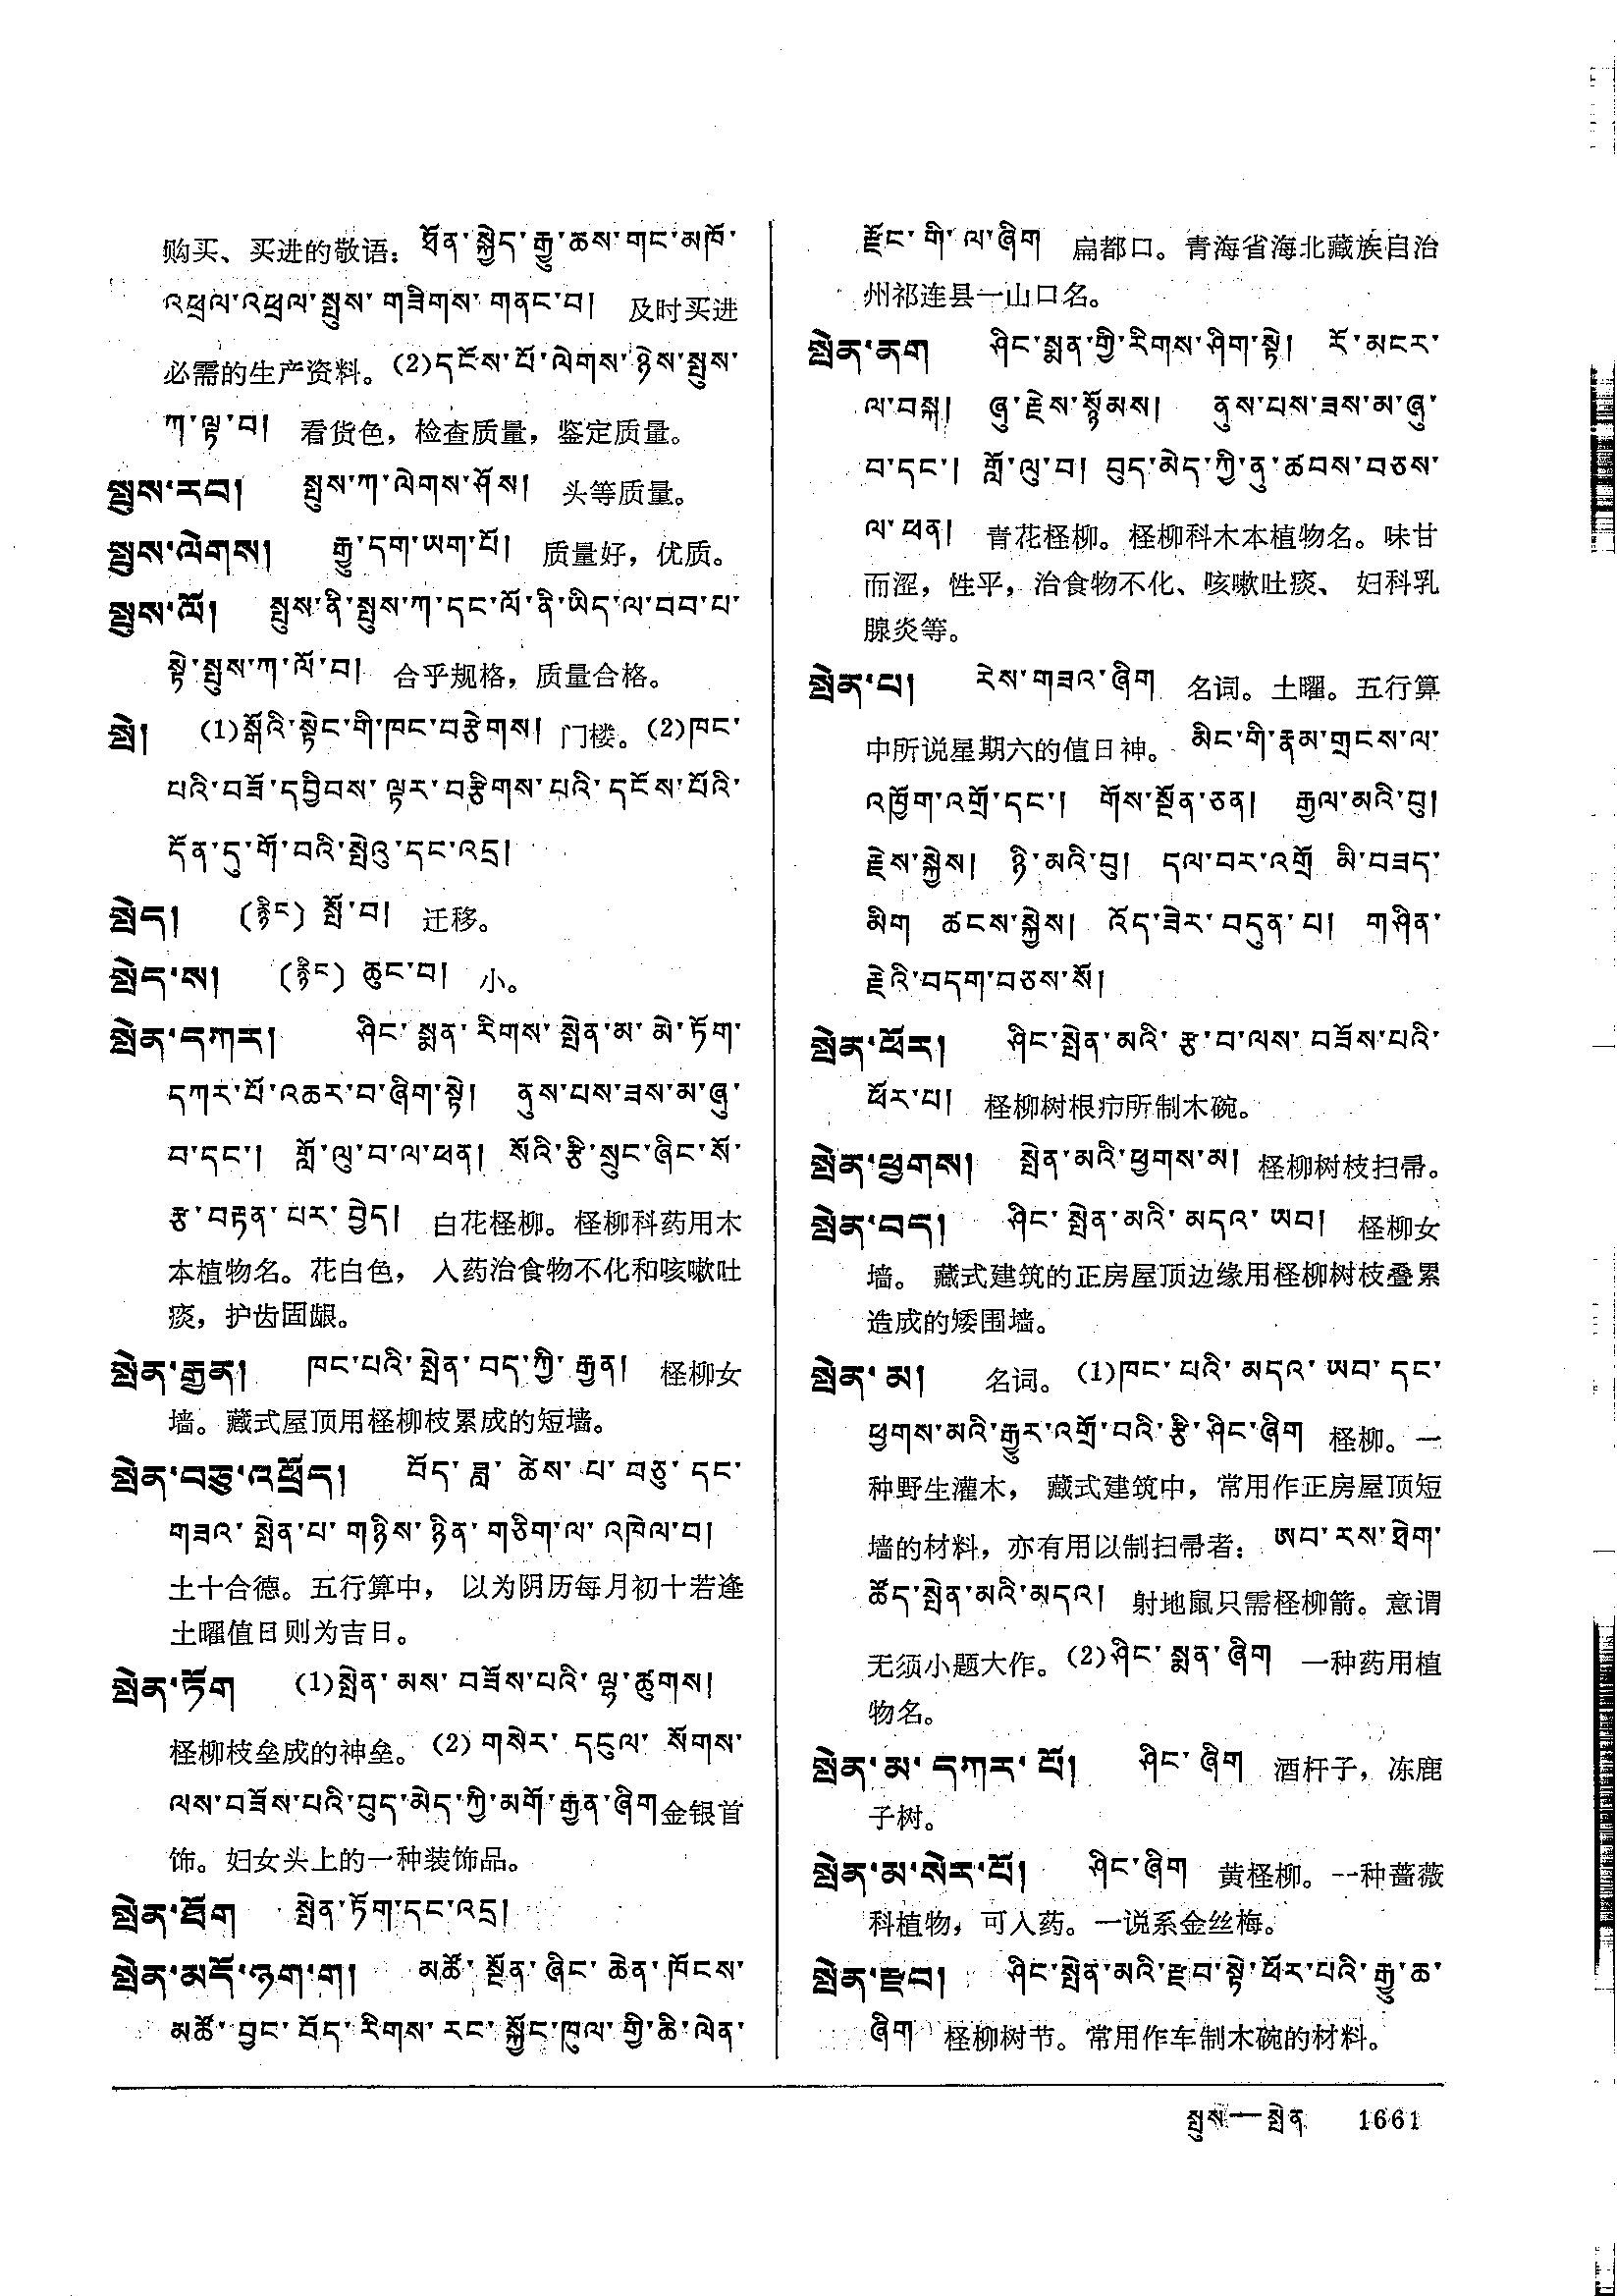 购买、买进的敬语：ཐོན་སྐྱེད་རྒྱུ་ཆས་གང་མཁོ་
འཕྲལ་འཕྲལ་སྤུས་གཟིགས་གནང་བ། 及时买进
必需的生产资料。(2)དངོས་པོ་ལེགས་ཉེས་སྤུས་
ཀ་ལྟ་བ། 看货色，检查质量，鉴定质量。
སྤུས་རབ། སྤུས་ཀ་ལེགས་ཤོས། 头等质量。
སྤུས་ལེགས། རྒྱུ་དག་ཡག་པོ། 质量好，优质。
སྤུས་ལོ། སྤུས་ནི་སྤུས་ཀ་དང་ལོ་ནི་ཡིད་ལ་བབ་པ་
སྟེ་སྤུས་ཀ་ལོ་བ། 合乎规格，质量合格。
སྤེ། (1)སྒོའི་སྟེང་གི་ཁང་བརྩེགས། 门楼。(2)ཁང་
པའི་བཟོ་དབྱིབས་ལྟར་བརྩིགས་པའི་དངོས་པོའི་
དོན་དུ་གོ་བའི་སྤེའུ་དང་འདྲ།
སྤེད། (རྙིང) སྤོ་བ། 迁移。
སྤེད་ས། (རྙིང) ཆུང་བ། 小。
སྤེན་དཀར། ཤིང་སྨན་རིགས་སྤེན་མ་མེ་ཏོག་
དཀར་པོ་འཆར་བ་ཞིག་སྟེ། ནུས་པས་ཟས་མ་ཞུ་
བ་དང་། གློ་ལུ་བ་ལ་ཕན། སོའི་རྩི་སྲུང་ཞིང་སོ་
རྩ་བརྟན་པར་བྱེད། 白花柽柳。柽柳科药用木
本植物名。花白色，入药治食物不化和咳嗽吐
痰，护齿固龈。
སྤེན་རྒྱན། ཁང་པའི་སྤེན་བད་ཀྱི་རྒྱན། 柽柳女
墙。藏式屋顶用柽柳枝累成的短墙。
སྤེན་བཅུ་འཕྲོད། བོད་ཟླ་ཚེས་པ་བཅུ་དང་
གཟའ་སྤེན་པ་གཉིས་ཉིན་གཅིག་ལ་འཁེལ་བ།
土十合德。五行算中，以为阴历每月初十若逢
土曜值日则为吉日。
སྤེན་ཏོག (1)སྤེན་མས་བཟོས་པའི་ལྷ་ཚུགས།
柽柳枝垒成的神垒。(2)གསེར་དངུལ་སོགས་
ལས་བཟོས་པའི་བུད་མེད་ཀྱི་མགོ་རྒྱན་ཞིག金银首
饰。妇女头上的一种装饰品。
སྤེན་ཐོག སྤེན་ཏོག་དང་འདྲ།
སྤེན་མདོ་ཉག་ག། མཚོ་སྔོན་ཞིང་ཆེན་ཁོངས་
མཚོ་བྱང་བོད་རིགས་རང་སྐྱོང་ཁུལ་གྱི་ཆི་ལེན་
རྫོང་གི་ལ་ཞིག 扁都口。青海省海北藏族自治
州祁连县一山口名。
སྤེན་ནག ཤིང་སྨན་གྱི་རིགས་ཤིག་སྟེ། རོ་མངར་
ལ་བསྐ། ཞུ་རྗེས་སྙོམས། ནུས་པས་ཟས་མ་ཞུ་
བ་དང་། གློ་ལུ་བ། བུད་མེད་ཀྱི་ནུ་ཚབས་བཅས་
ལ་ཕན། 青花柽柳。柽柳科木本植物名。味甘
而涩，性平，治食物不化、咳嗽吐痰、妇科乳
腺炎等。
སྤེན་པ། རེས་གཟའ་ཞིག 名词。土曜。五行算
中所说星期六的值日神。མིང་གི་རྣམ་གྲངས་ལ་
འཁྱོག་འགྲོ་དང་། གོས་སྔོན་ཅན། རྒྱལ་མའི་བུ།
རྗེས་སྐྱེས། ཉི་མའི་བུ། དལ་བར་འགྲོ མི་བཟད་
མིག ཚངས་སྐྱེས། འོད་ཟེར་བདུན་པ། གཤིན་
རྗེའི་བདག་བཅས་སོ།
སྤེན་ཕོར། ཤིང་སྤེན་མའི་རྩ་བ་ལས་བཟོས་པའི་
ཕོར་པ། 柽柳树根疖所制木碗。
སྤེན་ཕྱགས། སྤེན་མའི་ཕྱགས་མ། 柽柳树枝扫帚。
སྤེན་བད། ཤིང་སྤེན་མའི་མདའ་ཡབ། 柽柳女
墙。藏式建筑的正房屋顶边缘用柽柳树枝叠累
造成的矮围墙。
སྤེན་མ། 名词。(1)ཁང་པའི་མདའ་ཡབ་དང་
ཕྱགས་མའི་རྒྱུར་འགྲོ་བའི་རྩི་ཤིང་ཞིག 柽柳。一
种野生灌木，藏式建筑中，常用作正房屋顶短
墙的材料，亦有用以制扫帚者：ཨབ་རས་ཐེག་
ཚོད་སྤེན་མའི་མདའ། 射地鼠只需柽柳箭。意谓
无须小题大作。(2)ཤིང་སྨན་ཞིག 一种药用植
物名。
སྤེན་མ་དཀར་པོ། ཤིང་ཞིག 酒杆子，冻鹿
子树。
སྤེན་མ་སེར་པོ། ཤིང་ཞིག 黄柽柳。一种蔷薇
科植物，可入药。一说系金丝梅。
སྤེན་རྫབ། ཤིང་སྤེན་མའི་རྫབ་སྟེ་ཕོར་པའི་རྒྱུ་ཆ་
ཞིག 柽柳树节。常用作车制木碗的材料。
སྤུས—སྤེན 1661